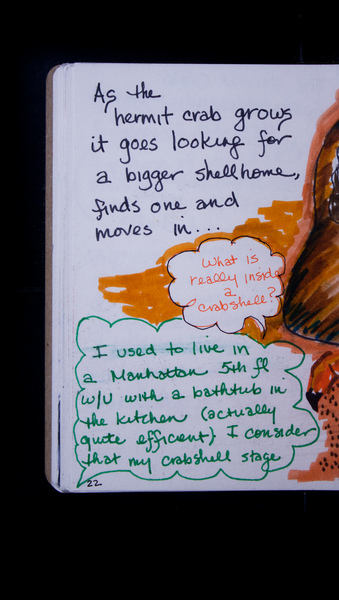 As the
hermit crab grows
it goes looking for
a bigger shellhome,
finds one and
moves in....
What is
really inside
a
crabshell?
I used to live in
a Manhattan 5th fl
w/u with a bathtub in
the kitchen (actually
quite efficient) I consider
that my crabshell stage
22